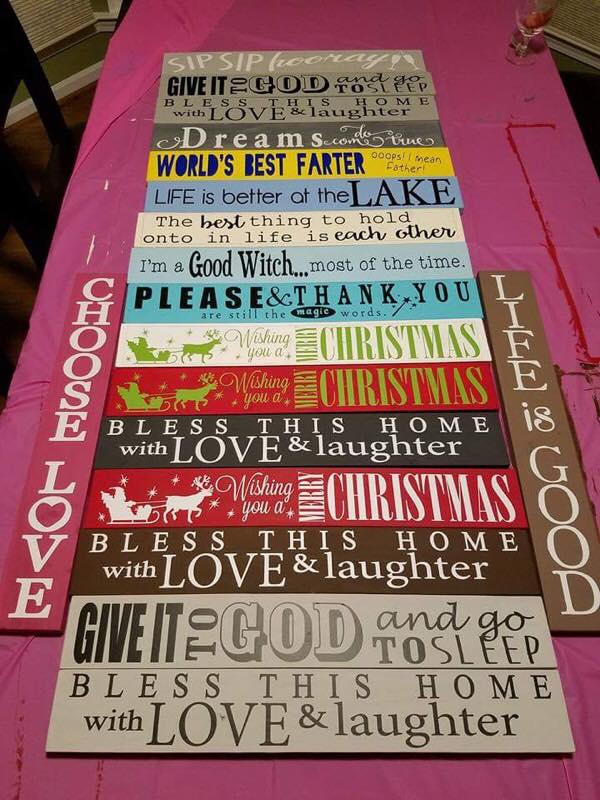 SIP SIP hooray
GIVE IT TO GOD and go TO SLEEP
BLESS THIS HOME
with LOVE & laughter
Dreams do come true
WORLD'S BEST FARTER ooops! I mean
Father!
LIFE is better at the LAKE
The best thing to hold
onto in life is each other
I'm a Good Witch... most of the time.
PLEASE & THANK YOU
are still the magic words.
Wishing you a MERRY CHRISTMAS
Wishing you a MERRY CHRISTMAS
BLESS THIS HOME
with LOVE & laughter
Wishing you a MERRY CHRISTMAS
BLESS THIS HOME
with LOVE & laughter
GIVE IT TO GOD and go TO SLEEP
BLESS THIS HOME
with LOVE & laughter
CHOOSE LOVE
LIFE is GOOD